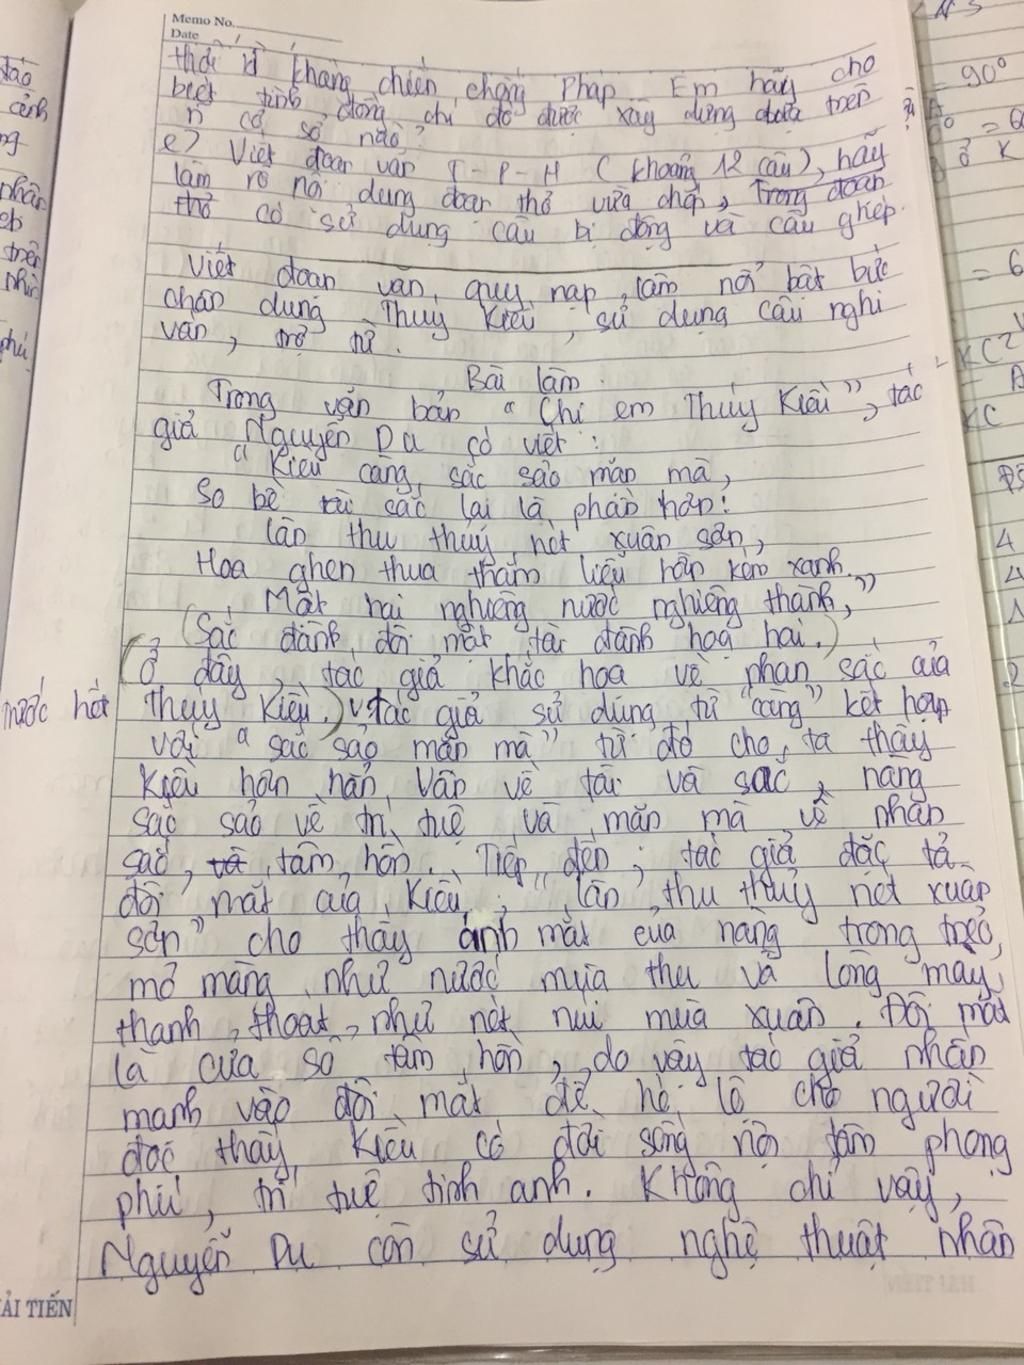 Memo No.
Date
thời kì kháng chiến chống Pháp. Em hãy cho
biết tình đồng chí đó được xây dựng dựa trên
n cơ sở nào?
e> Viết đoạn văn T-P-H (khoảng 12 câu), hãy
làm rõ nội dung đoạn thơ vừa chép, Trong đoạn
thơ có sử dụng câu bị động và câu ghép.
Viết đoạn văn quy nạp làm nổi bật bức
chân dung Thúy Kiều, sử dụng câu nghi
vấn, trợ từ.
Bài làm
Trong văn bản "Chị em Thúy Kiều", tác
giả Nguyễn Du có viết:
"Kiều càng sắc sảo mặn mà,
So bề tài sắc lại là phần hơn:
Làn thu thủy nét xuân sơn,
Hoa ghen thua thắm liễu hờn kém xanh.
Một hai nghiêng nước nghiêng thành,"
(Sắc đành đòi một tài đành hoạ hai.)
(Ở đây, tác giả khắc họa về phần sắc của
trước hết Thúy Kiều.) tác giả sử dụng từ "càng" kết hợp
với "sắc sảo mặn mà" từ đó cho ta thấy
Kiều hơn hẳn Vân về tài và sắc, nàng
sắc sảo về trí tuệ và mặn mà về nhan
sắc, và tâm hồn. Tiếp đến, tác giả đặc tả
đôi mắt của Kiều: "làn thu thủy nét xuân
sơn" cho thấy ánh mắt của nàng trong trẻo,
mơ màng như nước mùa thu và lông mày
thanh thoát như nét núi mùa xuân. Đôi mắt
là cửa sổ tâm hồn, do vậy tác giả nhấn
mạnh vào đôi mắt để hé lộ cho người
đọc thấy Kiều có đời sống nội tâm phong
phú, trí tuệ tinh anh. Không chỉ vậy,
Nguyễn Du còn sử dụng nghệ thuật nhân
ẢI TIẾN